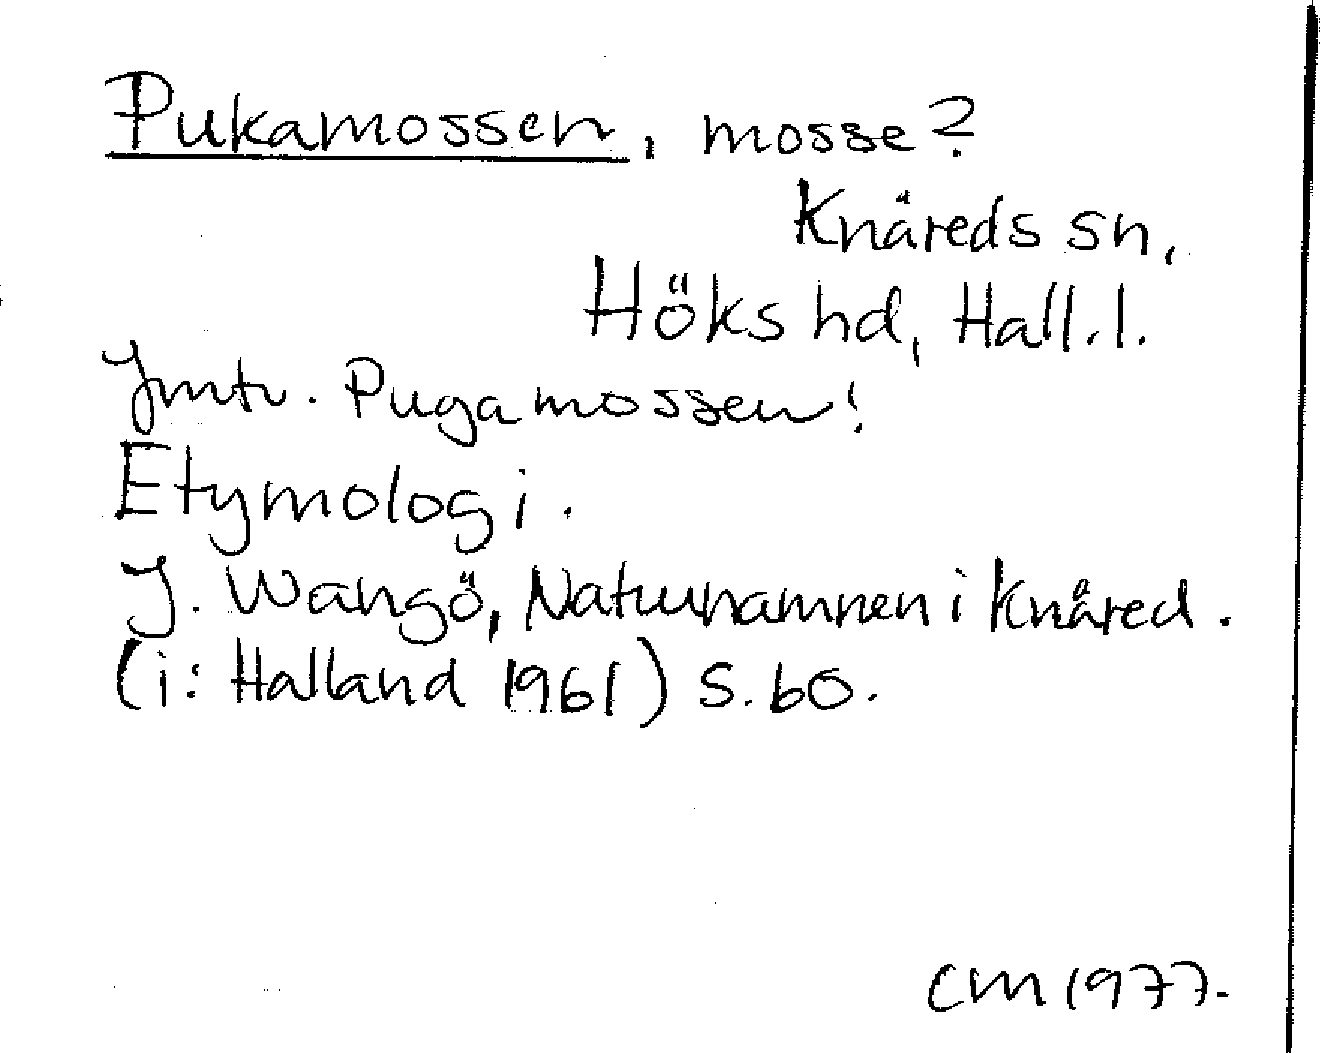 Pukamossen, mosse?
Knäreds sn,
Höks hd, Hall.l.
Jmtv. Pugamossen!
Etymologi.
J. Wangö, Naturnamnen i Knäred.
(i: Halland 1961) S.60.
CM 1977.